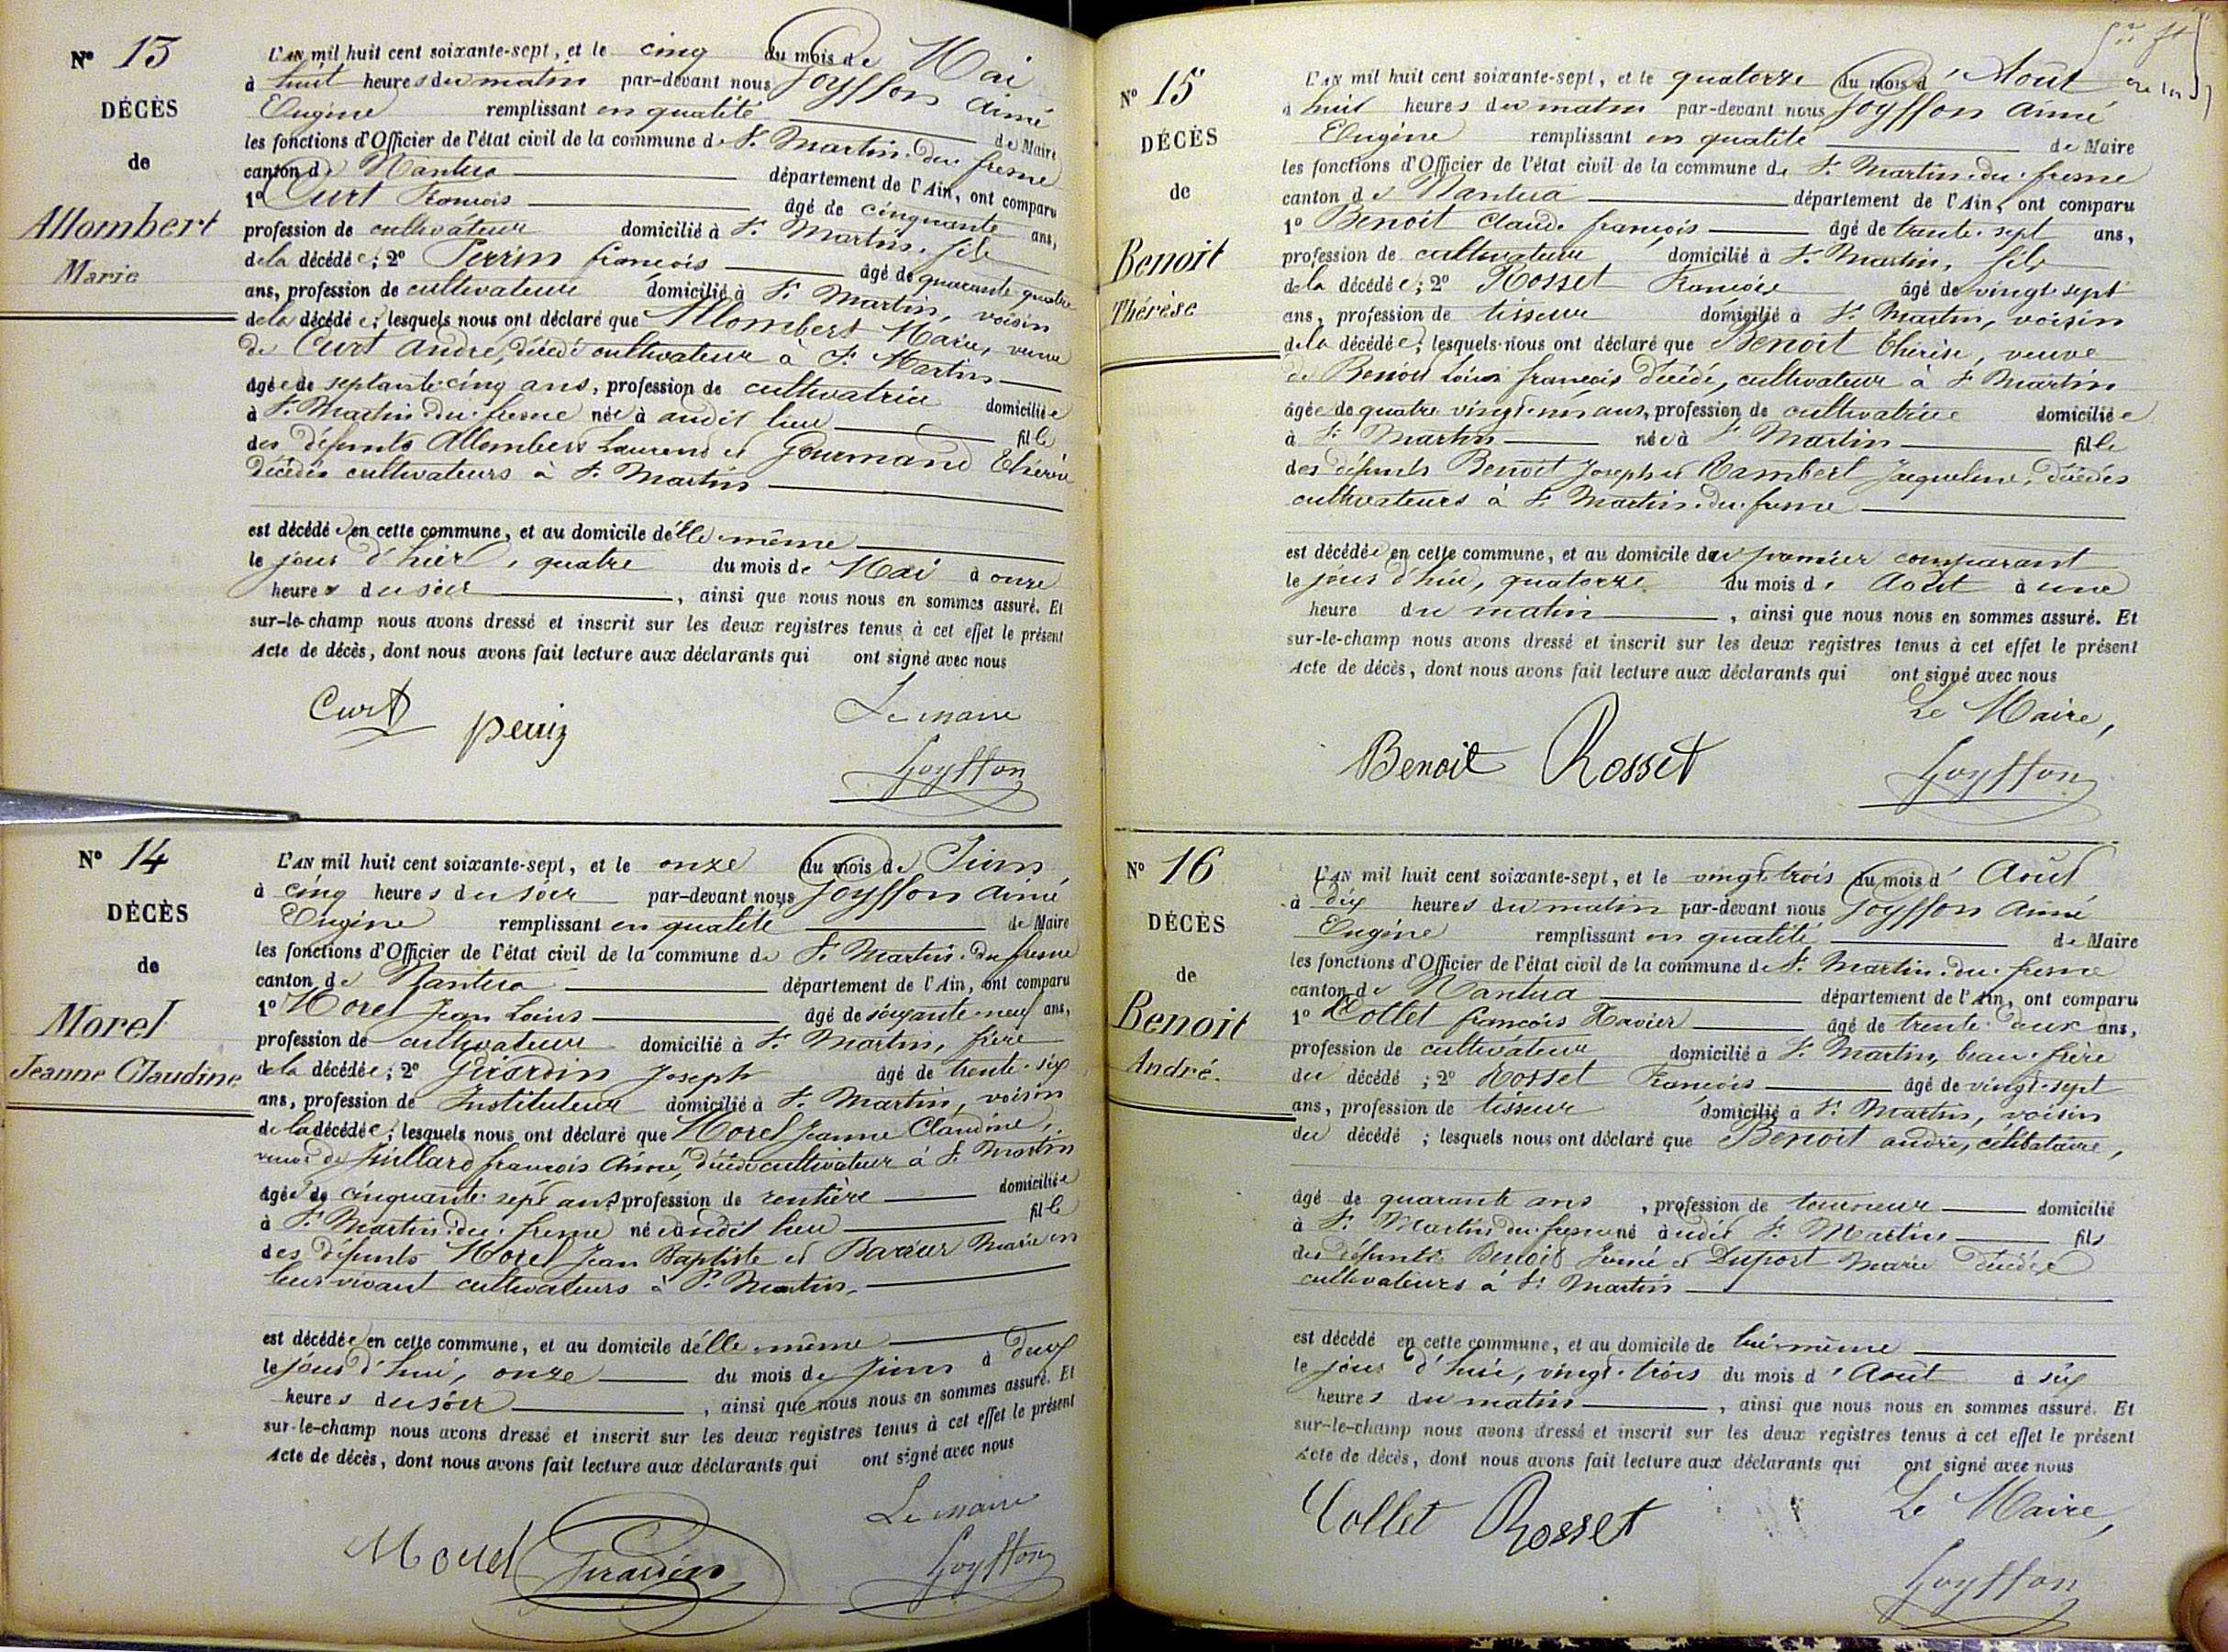 N° 13
DÉCÈS
de
Allombert
Marie
L'AN mil huit cent soixante-sept, et le cinq du mois de Mai
à huit heures du matin par-devant nous Goyffon Aimé
Eugène remplissant en qualité de Maire
les fonctions d'Officier de l'état civil de la commune de St Martin-du-fresne
canton de Nantua département de l'Ain, ont comparu
1° Curt François âgé de cinquante ans,
profession de cultivateur domicilié à St Martin, fils
de la décédée ; 2° Perrin françois âgé de quarante quatre
ans, profession de cultivateur domicilié à St Martin, voisin
de la décédée ; lesquels nous ont déclaré que Allombert Marie, veuve
de Curt André, décédé cultivateur à St Martin
âgée de septante-cinq ans, profession de cultivatrice domiciliée
à St Martin-du-fresne née à audit lieu fille
des défunts Allombert Laurend et Gourmand Thérèse
décédés cultivateurs à St Martin
est décédée en cette commune, et au domicile d'elle-même
le jour d'hier, quatre du mois de Mai à onze
heures du soir , ainsi que nous nous en sommes assuré. Et
sur-le-champ nous avons dressé et inscrit sur les deux registres tenus à cet effet le présent
Acte de décès, dont nous avons fait lecture aux déclarants qui ont signé avec nous
Curt
Le maire
Goyffon
N° 14
DÉCÈS
de
Morel
Jeanne Claudine
L'AN mil huit cent soixante-sept, et le onze du mois de Juin
à cinq heures du soir par-devant nous Goyffon Aimé
Eugène remplissant en qualité de Maire
les fonctions d'Officier de l'état civil de la commune de St Martin-du-fresne
canton de Nantua département de l'Ain, ont comparu
1° Morel Jean Louis âgé de soixante-neuf ans,
profession de cultivateur domicilié à St Martin, frère
de la décédée ; 2° Girardin Joseph âgé de trente-six
ans, profession de Instituteur domicilié à St Martin, voisin
de la décédée ; lesquels nous ont déclaré que Morel Jeanne Claudine,
veuve de Juillard françois Aimé, décédé cultivateur à St Martin
âgée de cinquante-sept ans profession de rentière domiciliée
à St Martin-du-fresne née audit lieu fille
des défunts Morel Jean Baptiste et Marie en
leur vivant cultivateurs à St Martin.
est décédée en cette commune, et au domicile d'elle-même
le jour d'hui, onze du mois de Juin à deux
heures du soir , ainsi que nous nous en sommes assuré. Et
sur-le-champ nous avons dressé et inscrit sur les deux registres tenus à cet effet le présent
Acte de décès, dont nous avons fait lecture aux déclarants qui ont signé avec nous
Le maire
Morel Girardin Goyffon
N° 15
DÉCÈS
de
Benoit
Thérèse
L'AN mil huit cent soixante-sept, et le quatorze du mois d'Août
à huit heures du matin par-devant nous Goyffon Aimé
Eugène remplissant en qualité de Maire
les fonctions d'Officier de l'état civil de la commune de St Martin-du-fresne
canton de Nantua département de l'Ain, ont comparu
1° Benoit Claude françois âgé de trente-sept ans,
profession de cultivateur domicilié à St Martin, fils
de la décédée ; 2° Rosset François âgé de vingt-sept
ans, profession de tisseur domicilié à St Martin, voisin
de la décédée ; lesquels nous ont déclaré que Benoit thérèse, veuve
de Benoit Louis françois décédé, cultivateur à St Martin
âgée de quatre vingt ans, profession de cultivatrice domiciliée
à St Martin née à St Martin fille
des défunts Benoit Joseph et Rambert Jacqueline, décédés
cultivateurs à St Martin-du-fresne
est décédée en cette commune, et au domicile du premier comparant
le jour d'hui, quatorze du mois d'Août à une
heure du matin , ainsi que nous nous en sommes assuré. Et
sur-le-champ nous avons dressé et inscrit sur les deux registres tenus à cet effet le présent
Acte de décès, dont nous avons fait lecture aux déclarants qui ont signé avec nous
Le Maire,
Benoit Rosset Goyffon
N° 16
DÉCÈS
de
Benoit
André.
L'AN mil huit cent soixante-sept, et le vingt-trois du mois d'Août
à dix heures du matin par-devant nous Goyffon Aimé
Eugène remplissant en qualité de Maire
les fonctions d'Officier de l'état civil de la commune de St Martin-du-fresne
canton de Nantua département de l'Ain, ont comparu
1° Collet françois Xavier âgé de trente-deux ans,
profession de cultivateur domicilié à St Martin, beau-frère
du décédé ; 2° Rosset François âgé de vingt-sept
ans, profession de tisseur domicilié à St Martin, voisin
du décédé ; lesquels nous ont déclaré que Benoit andré, célibataire,
âgé de quarante ans , profession de tourneur domicilié
à St Martin-du-fresne né audit St Martin fils
des défunts Benoit et Duport Marie décédés
cultivateurs à St Martin
est décédé en cette commune, et au domicile de lui-même
le jour d'hui, vingt-trois du mois d'Août à six
heures du matin , ainsi que nous nous en sommes assuré. Et
sur-le-champ nous avons dressé et inscrit sur les deux registres tenus à cet effet le présent
Acte de décès, dont nous avons fait lecture aux déclarants qui ont signé avec nous
Collet Rosset Le Maire,
Goyffon